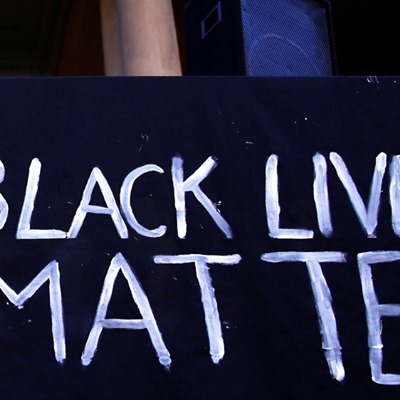 BLACK LIVE
MATTE